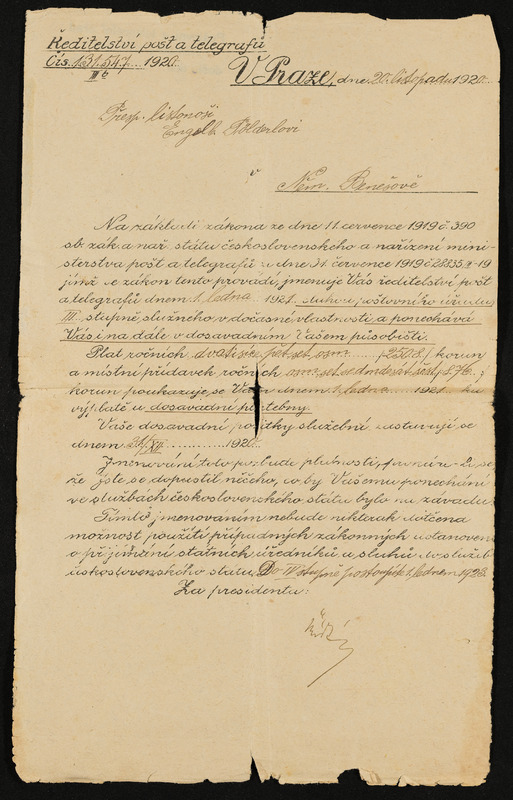 Ředitelství pošt a telegrafů
Čís. 131.547 1920.
III b
V Praze, dne 20. listopadu 1920.
Přesp. listonoši
Engelb. Pölderlovi
v
Něm. Benešově
Na základě zákona ze dne 11. července 1919 č. 390
sb. zák. a nař. státu československého a nařízení mini-
sterstva pošt a telegrafů z dne 31. července 1919 č.
jímž se zákon tento provádí, jmenuje Vás ředitelství pošt
a telegrafů dnem 1. ledna 1921 sluhou poštovního úřadu
III. stupně služného v dočasné vlastnosti a ponechává
Vás i na dále v dosavadním Vašem působišti.
Plat ročních dvatisíce pět set osm (2508) korun
a místní přídavek ročních osm set sedmdesát šest (876)
korun poukazuje se Vám dnem 1. ledna 1921 ku
výplatě u dosavadní platebny.
Vaše dosavadní požitky služební zastavují se
dnem 31/XII 1920.
Jmenování toto pozbude platnosti, prokáže-li se,
že jste se dopustil něčeho, co by Vašemu ponechání
ve službách československého státu bylo na závadu.
Tímto jmenováním nebude nikterak dotčena
možnost použití případných zákonných ustanovení
o přijímání státních úředníků a sluhů do služeb
československého státu. Do IV stupně postoupíte 1. lednem 1923.
Za presidenta: